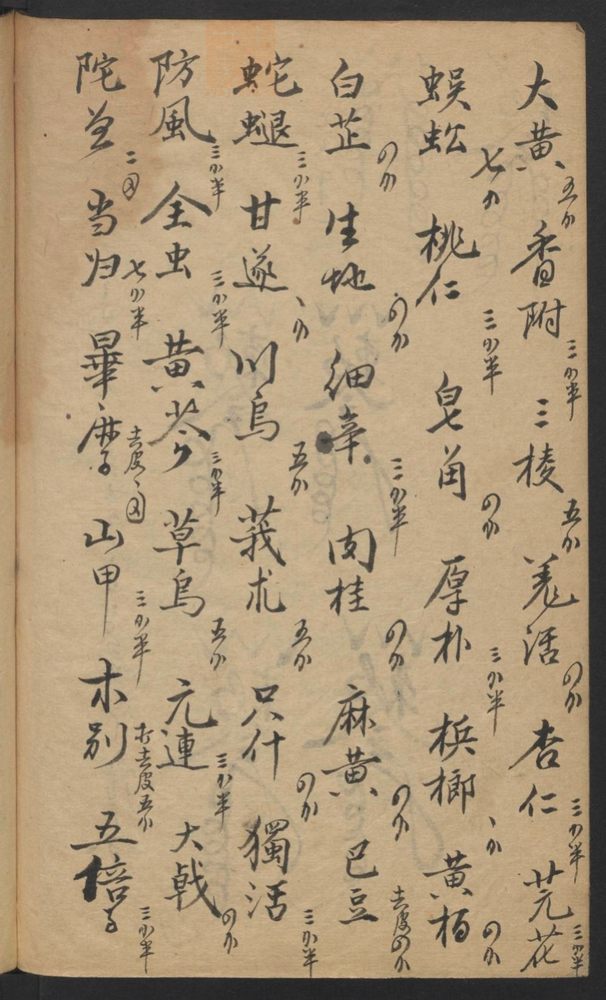 大黄 五分 香附 三分半 三棱 五分 羌活 四分 杏仁 三分半 芫花 三分半
蜈蚣 七分 桃仁 三分半 皂角 四分 厚朴 三分半 梹榔 分 黄柏 四分
白芷 四分 生地 四分 细辛 三分半 肉桂 四分 麻黄 四分 巴豆 去皮四分
蛇蜕 三分半 甘遂 分 川烏 五分 莪朮 五分 只什 四分 獨活 三分半
防風 三分半 全虫 三分半 黄芩 三分半 草烏 五分 元連 三分半 大戟 四分
陀 二 当归 七分半 草麻 去皮 山甲 三分半 木别 去皮五分 五倍子 三分半